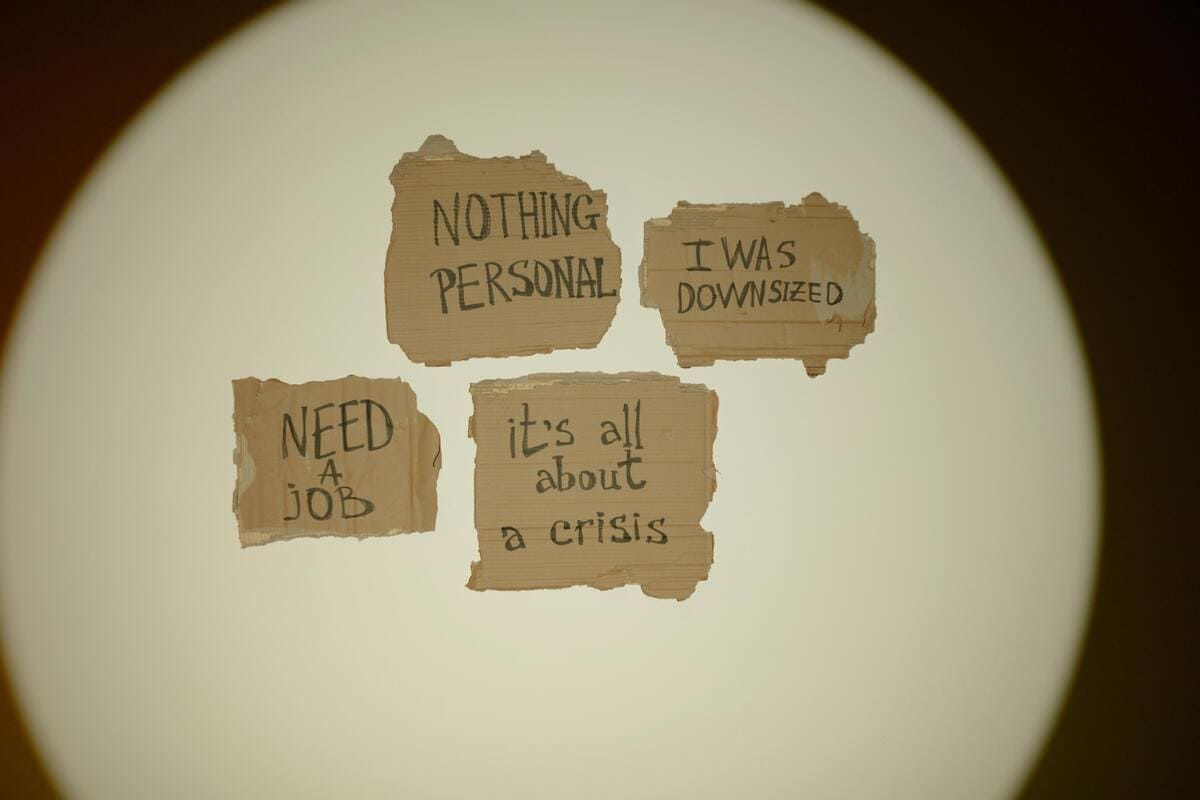 NOTHING
PERSONAL
I WAS
DOWNSIZED
NEED
A
jOB
it's all
about
a crisis